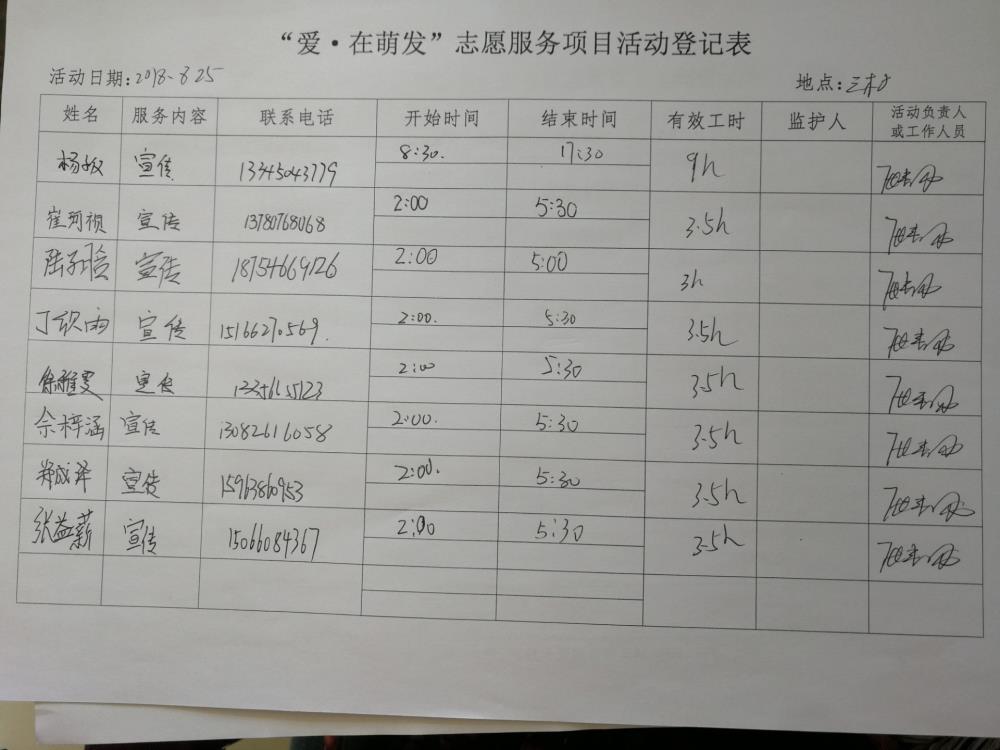 “爱·在萌发”志愿服务项目活动登记表
活动日期：2018.8.25 地点：三木
姓名 服务内容 联系电话 开始时间 结束时间 有效工时 监护人 活动负责人或工作人员
杨敏 宣传 13345043779 8:30. 17:30 9h
崔珂祯 宣传 13780768068 2:00 5:30 3.5h
宣传 18754669126 2:00 5:00 3h
丁织雨 宣传 15166270569. 2:00. 5:30 3.5h
徐雅雯 宣传 2:00 5:30 3.5h
佘梓涵 宣传 13082616058 2:00. 5:30 3.5h
郑成泽 宣传 15963860953 2:00. 5:30 3.5h
张益薪 宣传 15066084367 2:00 5:30 3.5h